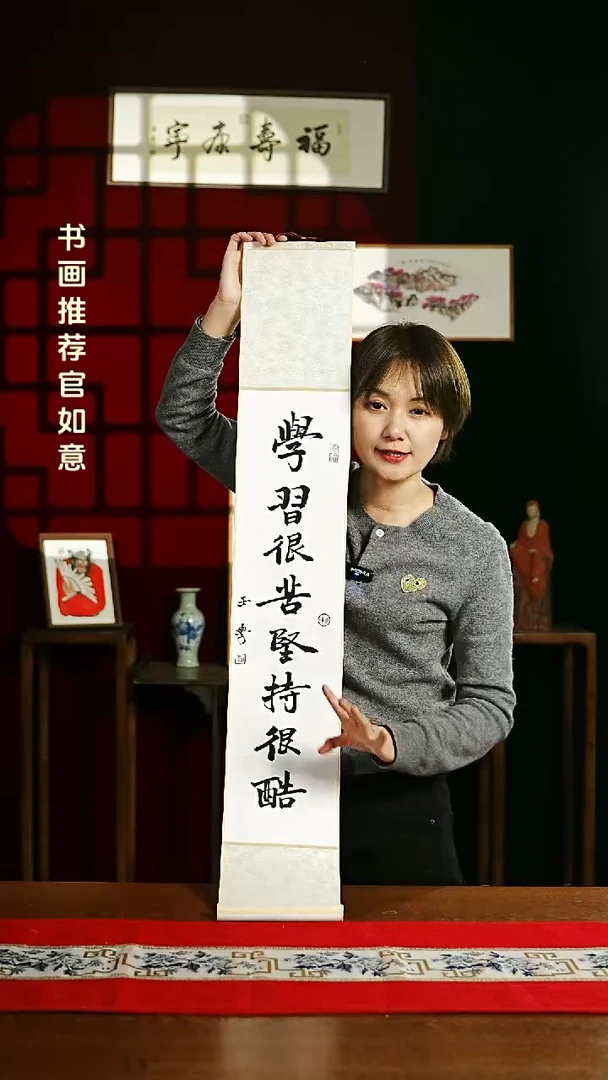 福壽康寧
书画推荐官如意
學習很苦堅持很酷